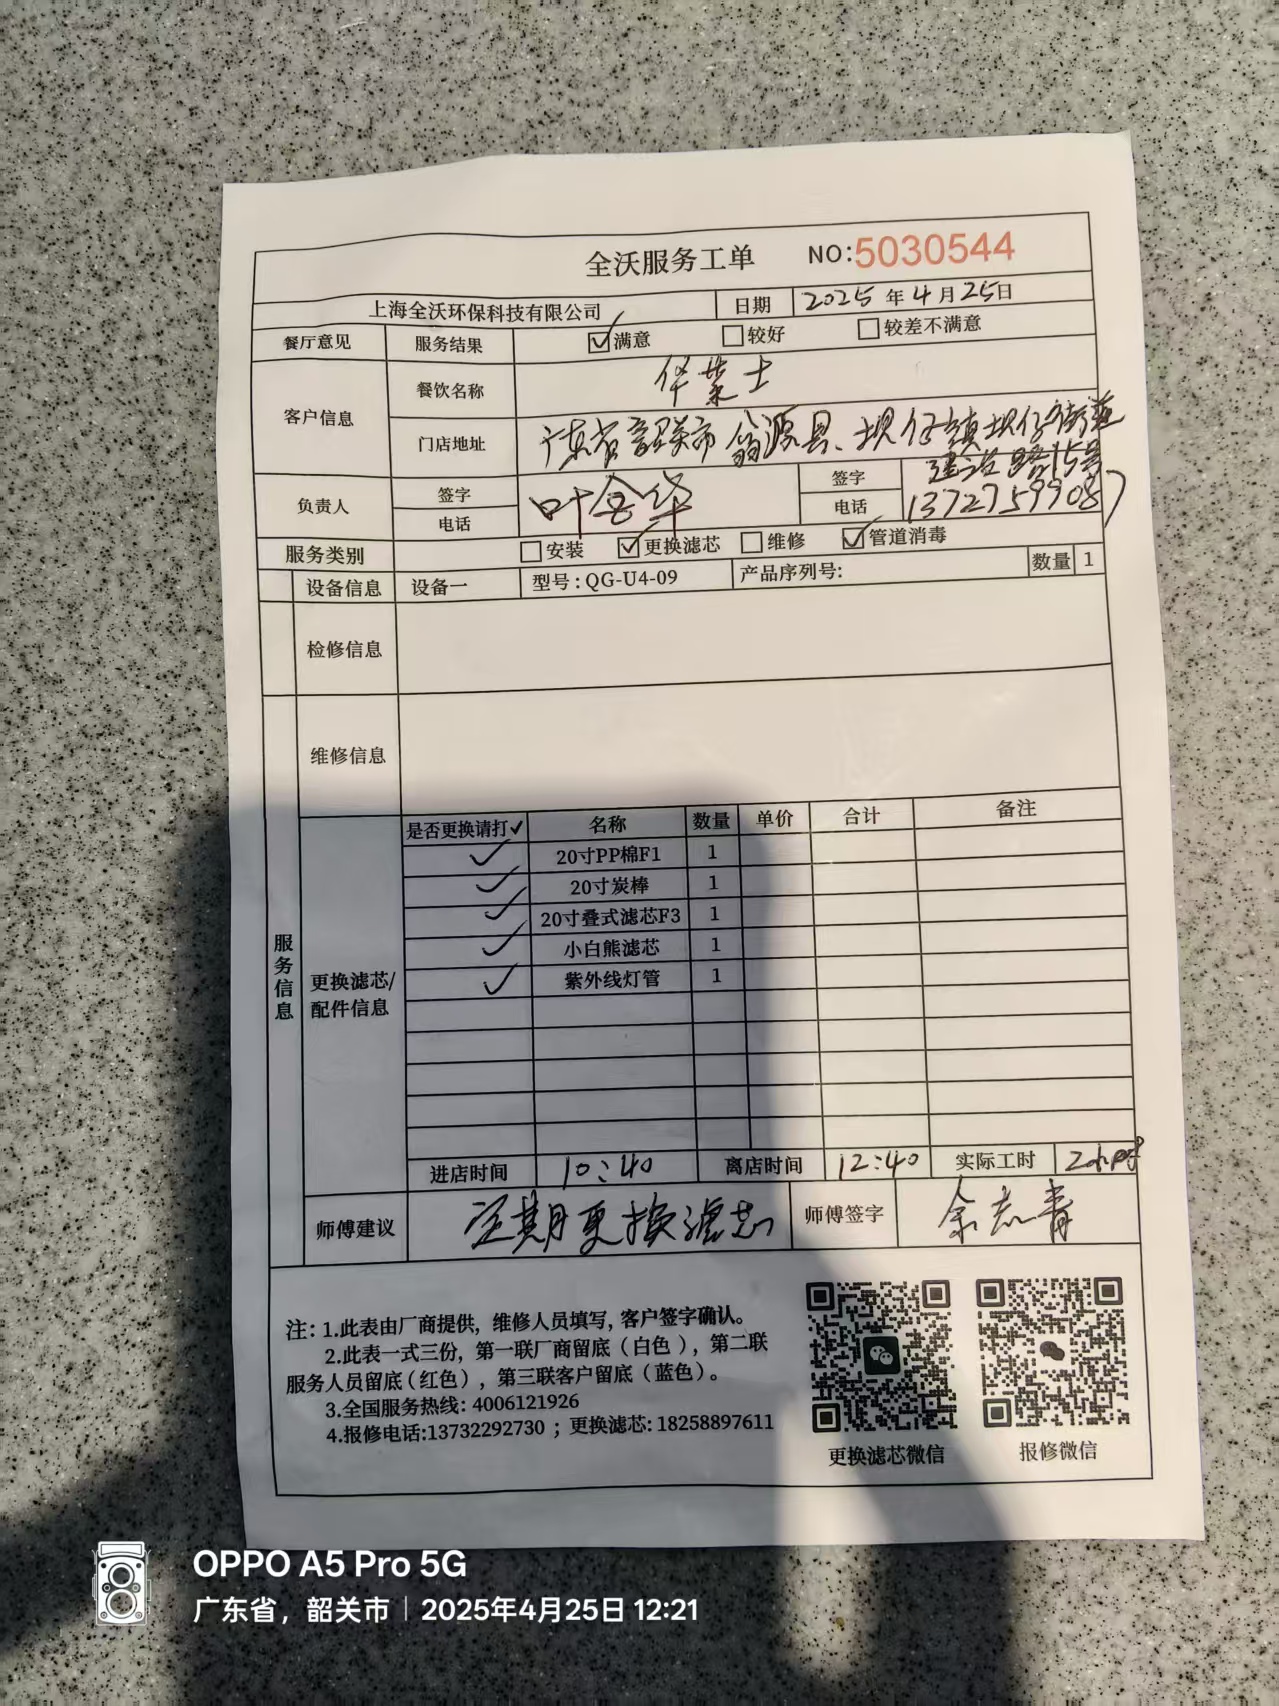 全沃服务工单 NO:5030544
上海全沃环保科技有限公司 日期 2025年4月25日
餐厅意见 服务结果 ☑满意 □较好 □较差不满意
客户信息 餐饮名称 华莱士
门店地址 广东省韶关市翁源县、坝仔镇坝仔街道
建设路15号
负责人 签字 叶金华 签字
电话 电话 13727599087
服务类别 □安装 ☑更换滤芯 □维修 ☑管道消毒
设备信息 设备一 型号:QG-U4-09 产品序列号: 数量 1
检修信息
维修信息
服务信息
更换滤芯/配件信息
是否更换请打✓ 名称 数量 单价 合计 备注
✓ 20寸PP棉F1 1
✓ 20寸炭棒 1
✓ 20寸叠式滤芯F3 1
✓ 小白熊滤芯 1
✓ 紫外线灯管 1
进店时间 10:40 离店时间 12:40 实际工时
师傅建议 定期更换滤芯 师傅签字 余志青
注:1.此表由厂商提供,维修人员填写,客户签字确认。
2.此表一式三份,第一联厂商留底(白色),第二联
服务人员留底(红色),第三联客户留底(蓝色)。
3.全国服务热线:4006121926
4.报修电话:13732292730;更换滤芯:18258897611
更换滤芯微信 报修微信
OPPO A5 Pro 5G
广东省,韶关市|2025年4月25日 12:21